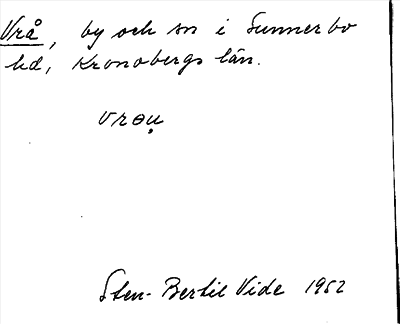 Vrå, by och sn i Sunnerbo
hd, Kronobergs län.
vrɵu̥
Sten-Bertil Vide 1952